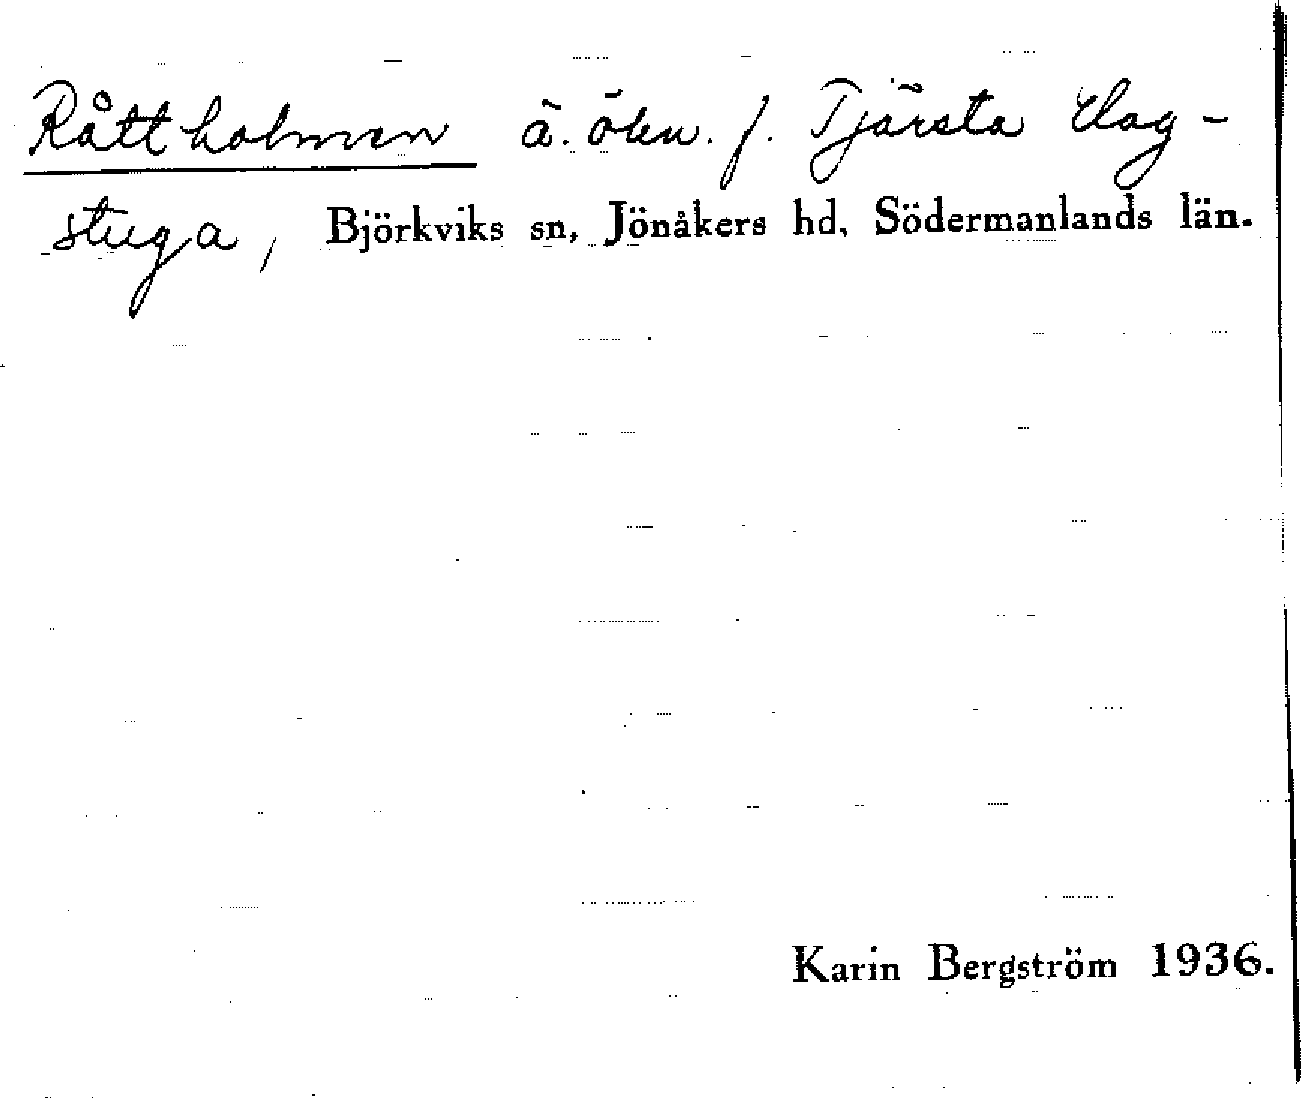 Råttholmen ä. ökn. f. Tjärsta Klag-
stuga, Björkviks sn, Jönåkers hd, Södermanlands län.
Karin Bergström 1936.